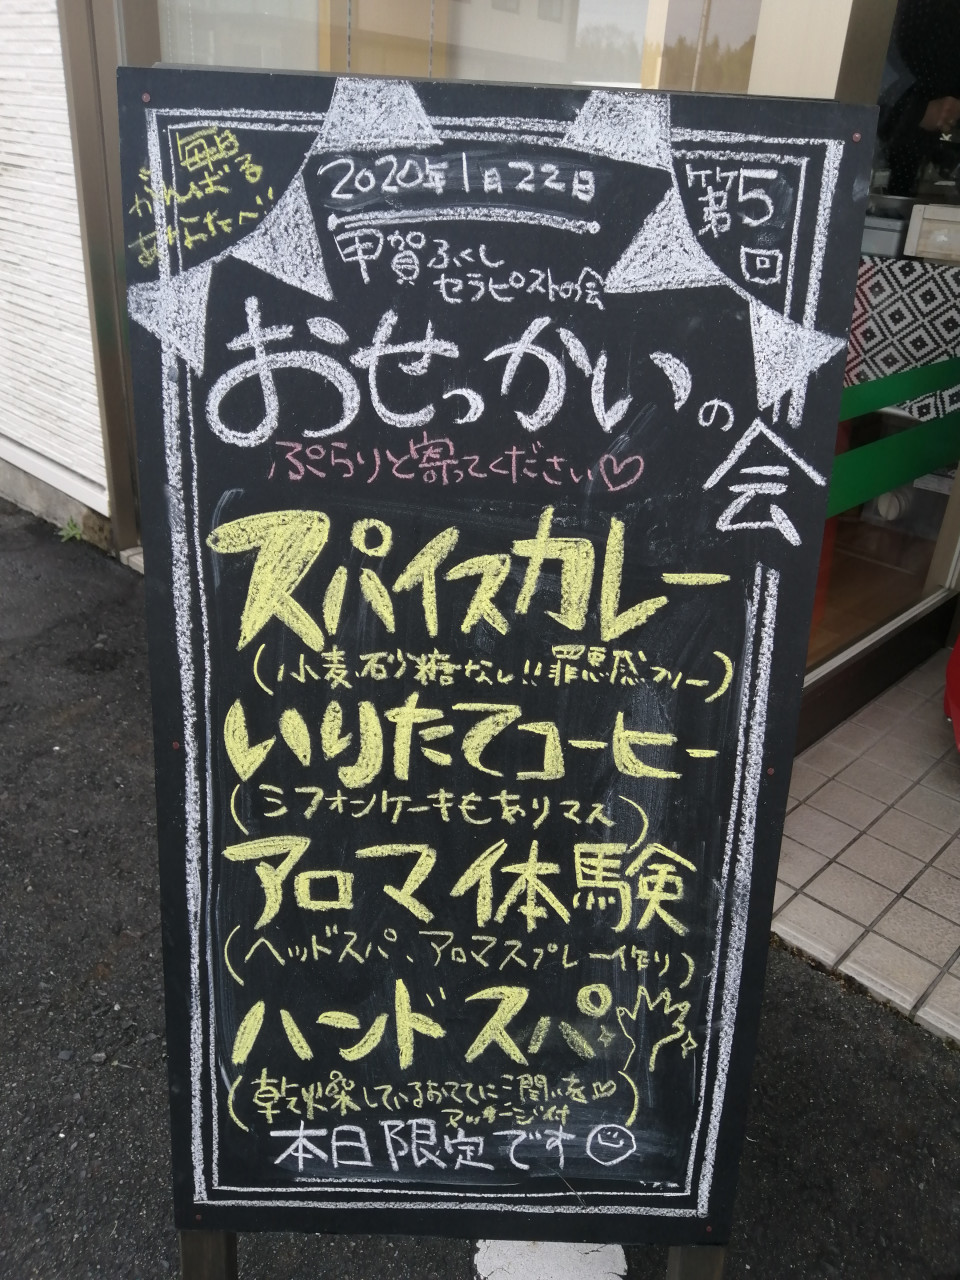 毎日
がんばる
あなたへ!
2020年1月22日
第5回
甲賀ふくし
セラピストの会
おせっかいの会
ぷらりと寄ってください♡
スパイスカレー
(小麦、砂糖なし!!罪悪感フリー)
いりたてコーヒー
(シフォンケーキもありマス)
アロマ体験
(ヘッドスパ、アロマスプレー作り)
ハンドスパ
(乾燥しているおててに潤いを♡
マッサージ付)
本日限定です